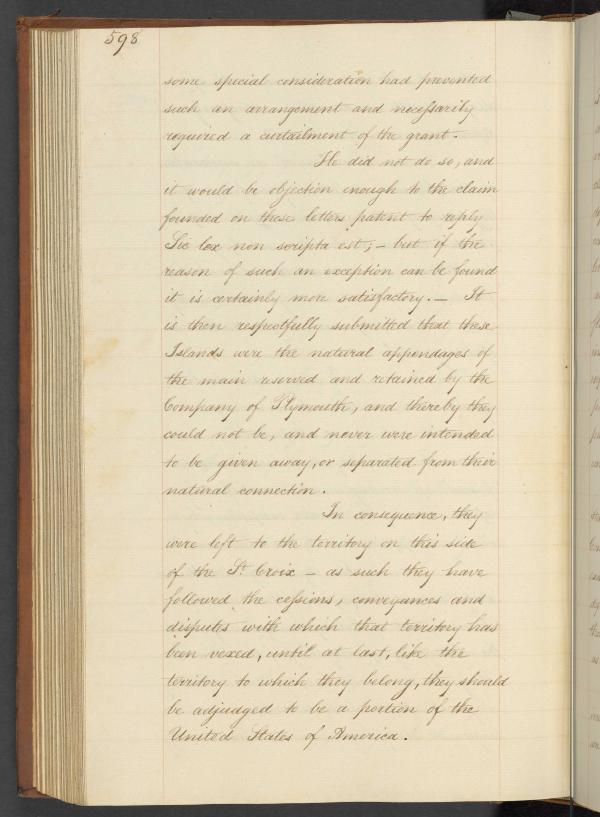 598
some special consideration had prevented
such an arrangement and necessarily
required a curtailment of the grant.
He did not do so, and
it would be objection enough to the claim
founded on these letters patent to reply
Sic lex non scripta est; — but if the
reason of such an exception can be found
it is certainly more satisfactory. — It
is then respectfully submitted that these
Islands were the natural appendages of
the main reserved and retained by the
Company of Plymouth, and thereby they
could not be, and never were intended
to be given away, or separated from their
natural connection.
In consequence, they
were left to the territory on this side
of the St. Croix — as such they have
followed the cessions, conveyances and
disputes with which that territory has
been vexed, until at last, like the
territory to which they belong, they should
be adjudged to be a portion of the
United States of America.